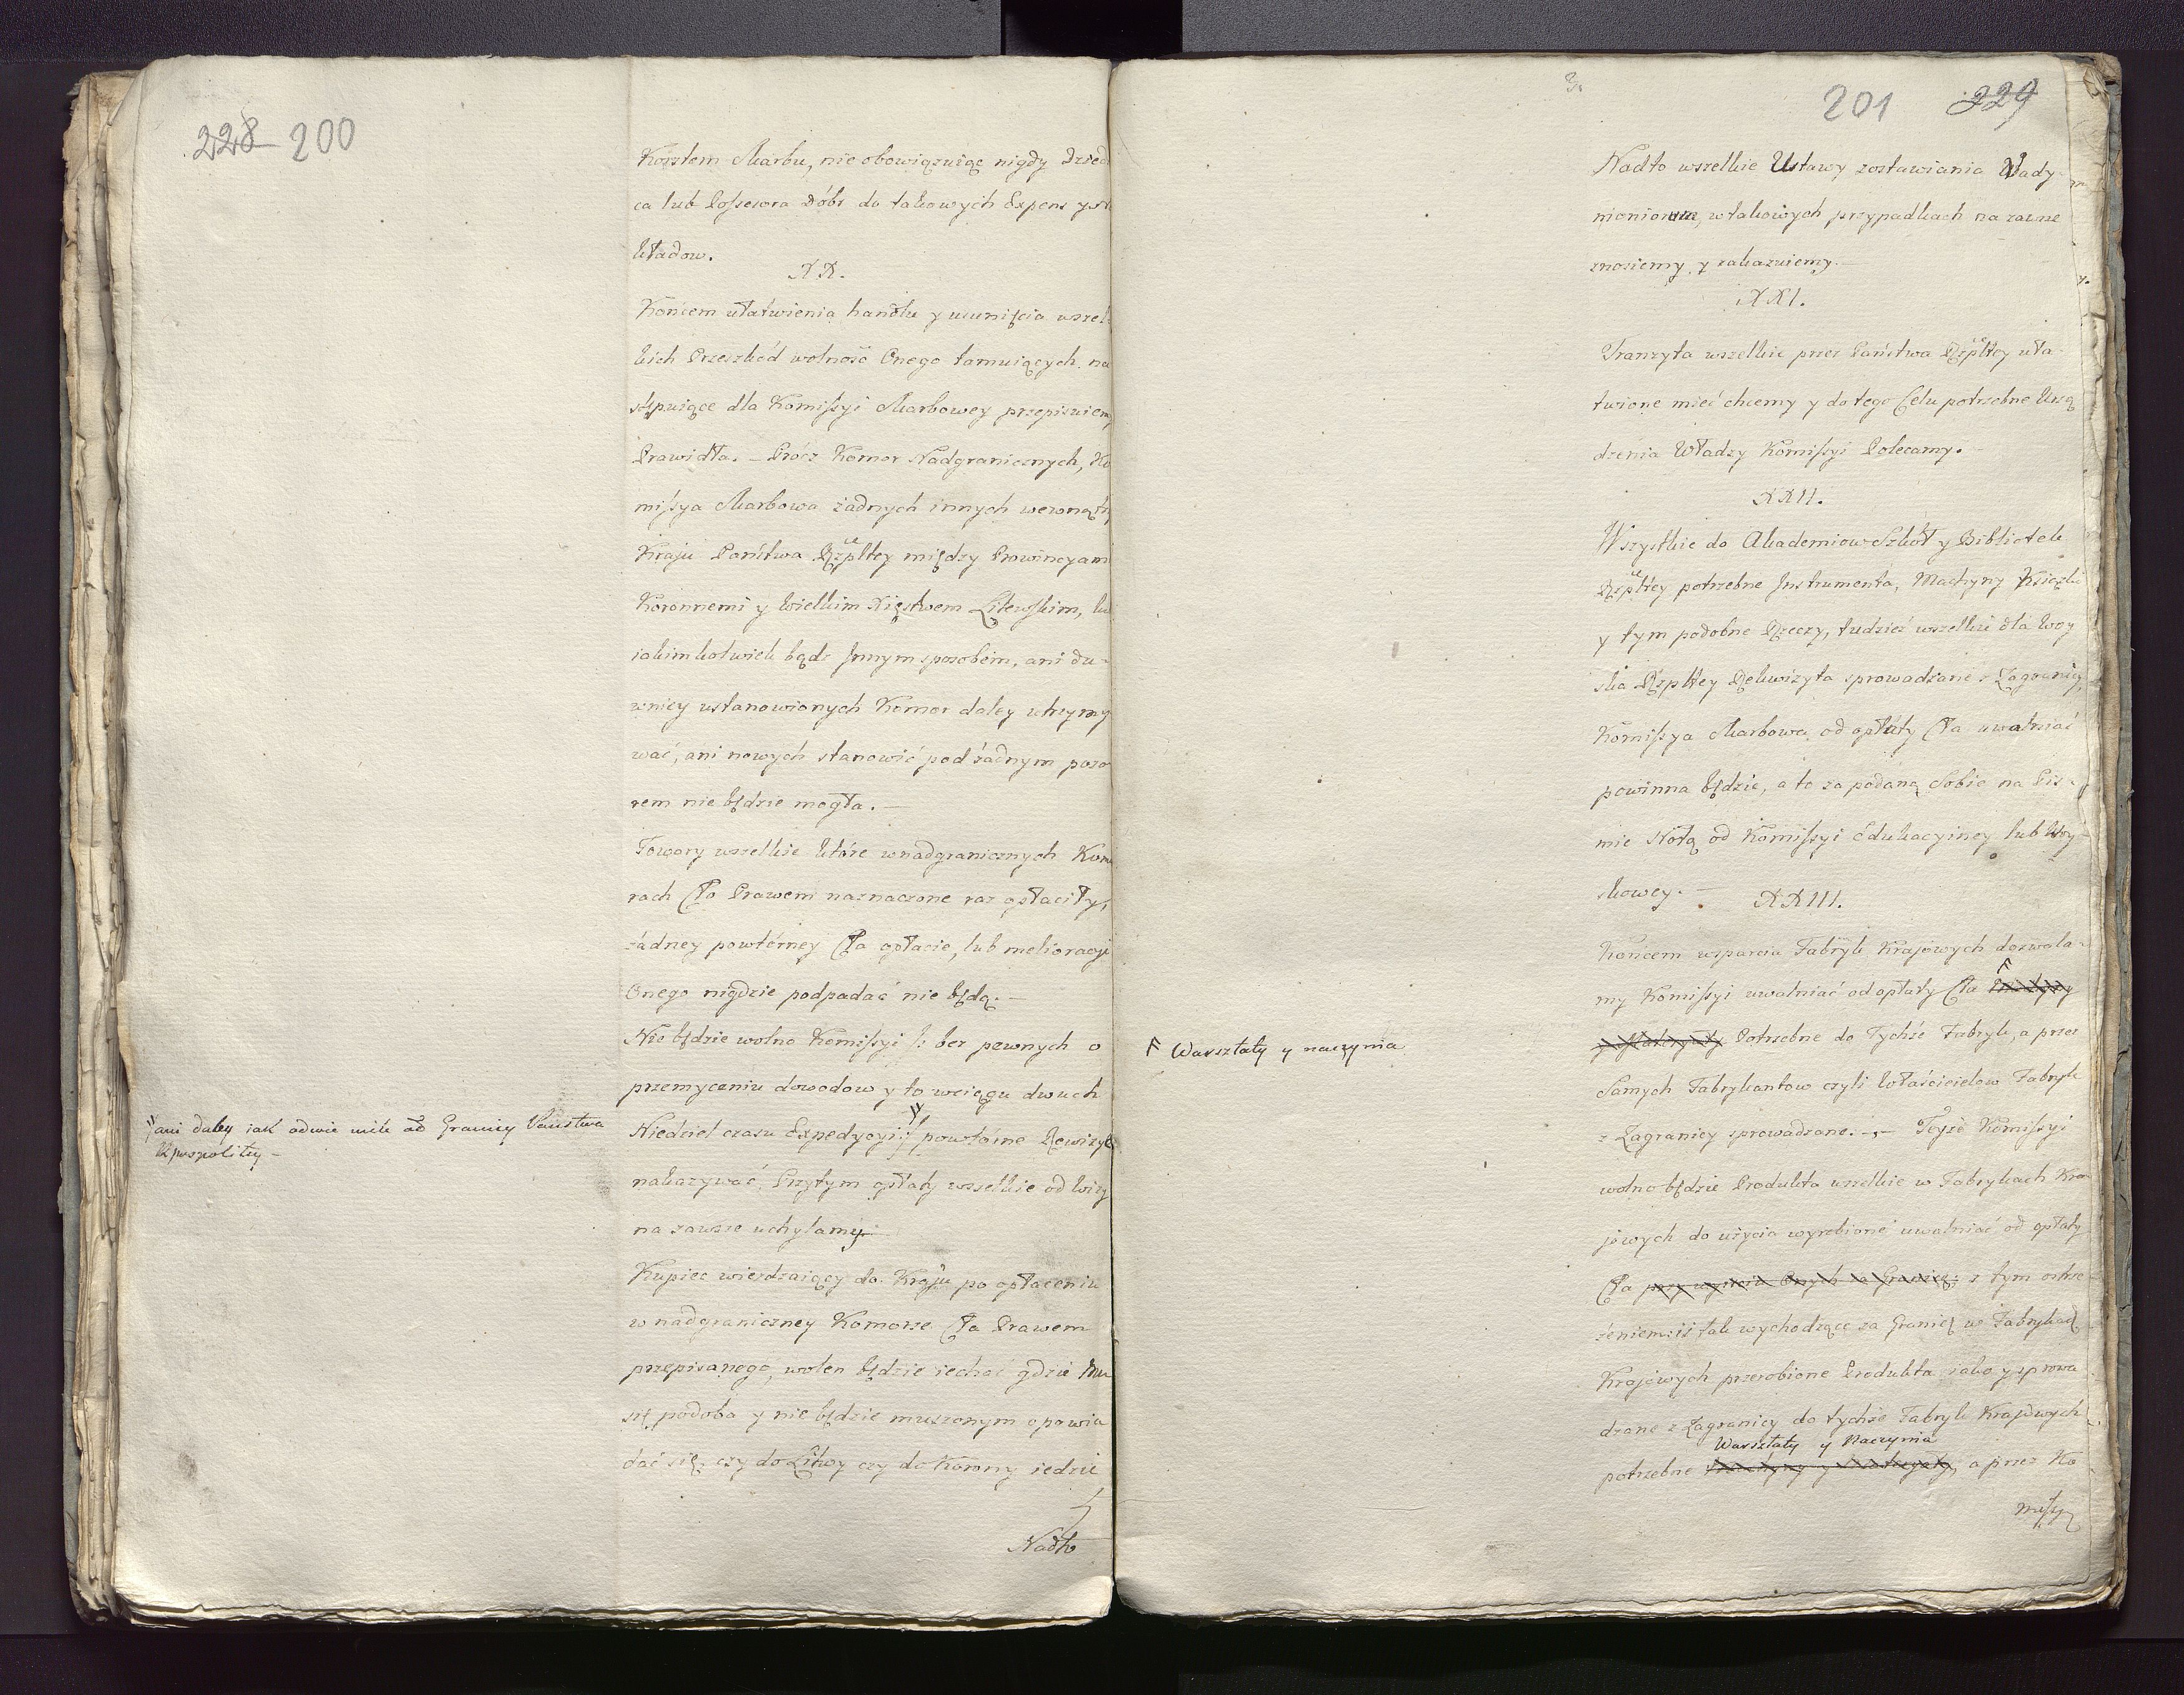 228 200
Kosztem Skarbu, nie obowiązuiąc nigdy Dziedz
ca lub Possesora Dóbr do takowych Expens y w
kładow.
XX.
Końcem ułatwienia handlu y usunięcia wszel
kich Przeszkód wolność Onego tamuiących na
stępuiące dla Komissyi Skarbowey przepisuiemy
Prawidła. – Prócz Komor Nadgranicznych, Ko
missya Skarbowa żadnych innych wewnątrz
Kraju Państwa Rzpltey między Prowincyami
Koronnemi y Wielkim Xięstwem Litewskim, lu
iakimkolwiek bądź Innym sposobem, ani da-
wniey ustanowionych Komor daley utrzymy
wać, ani nowych stanowić pod żadnym pozo
rem nie będzie mogła. –
Towary wszelkie które w nadgranicznych Komo
rach Cło Prawem naznaczone raz opłaciły,
żadney powtórney Cła opłacie, lub melioracyi
Onego nigdzie podpadać nie będą. –
Nie będzie wolno Komissyi bez pewnych o
przemyceniu dowodow y to w ciągu dwuch
Niedziel czasu Expedycyi powtórne Rewizye
ani daley iak o dwie mile od Granicy Państwa
Rzpospolitey –
nakazywać. Przytym opłaty wszelkie od Wizy
na zawsze uchylamy. –
Kupiec wieżdzaiący do Kraju po opłaceniu
w nadgraniczney Komorze Cła Prawem
przepisanego, wolen będzie iechać gdzie Mu
się podoba y nie będzie muszonym opowia
dać się, czy do Litwy czy do Korony iedzie
Nadto
201 229
Nadto wszelkie Ustawy zostawiania Wady
monionum, w takowych przypadkach na zawsze
znosiemy y zakazuiemy. –
XXI.
Tranzyta wszelkie przez Państwa Rzpltey uła
twione mieć chcemy y do tego Celu potrzebne Urzą
dzenia Władzy Komissyi Polecamy. –
XXII.
Wszystkie do Akademiow Szkół y Bibliotek
Rzpltey potrzebne Instrumenta, Machyny Książki
y tym podobne Rzeczy, tudzież wszelkie dla Woy
ska Rzpltey Rekwizyta sprowadzane z Zagranicy,
Komissya Skarbowa od opłaty Cła uwalniać
powinna będzie, a to za podaną Sobie na Piś-
mie Notą od Komissyi Edukacyiney lub Woy-
skowey. –
XXIII.
Końcem wsparcia Fabryk Krajowych dozwala-
my Komissyi uwalniać od opłaty Cła Machyny
y Materyały Potrzebne do Tychże Fabryk, a przez
Warsztaty y naczynia
Samych Fabrykantow czyli Właścicielow Fabryk
z Zagranicy sprowadzane. –,– Teyże Komissyi
wolno będzie Produkta wszelkie w Fabrykach Kra
jowych do użycia wyrobione uwalniać od opłaty
Cła przy wywozie Onych za Granicę; z tym ostrze
żeniem: iż tak wychodzące za Granicę w Fabrykach
Krajowych przerobione Produkta iako y sprowa
dzone z Zagranicy do tychże Fabryk Krajowych
Warsztaty y Naczynia
potrzebne Machyny y Materyały, a przez Ko
missyą